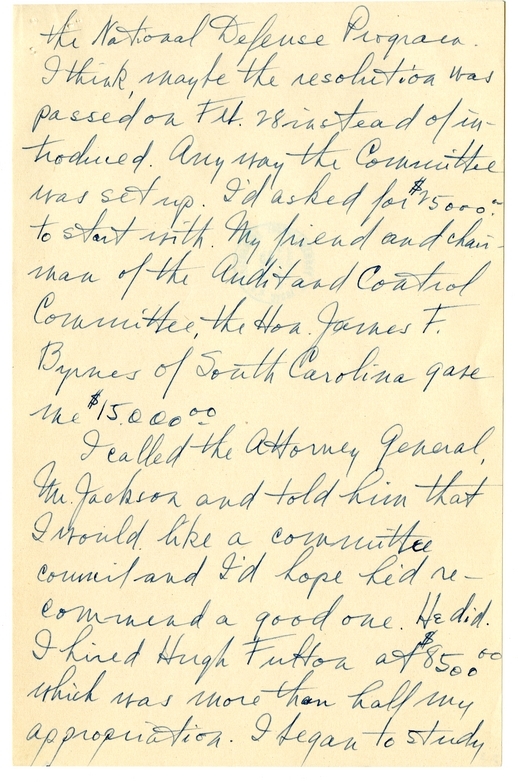 the National Defense Program.
I think maybe the resolution was
passed on Feb. 28 instead of in-
troduced. Any way the Committee
was set up. I'd asked for $25000.00
to start with. My friend and chair-
man of the Audit and Control
Committee, the Hon. James F.
Byrnes of South Carolina gave
me $15.000.00
I called the Attorney General,
Mr. Jackson and told him that
I would like a committee
council and I'd hope he'd re-
commend a good one. He did.
I hired Hugh Fulton at $8500.00
which was more than half my
appropriation. I began to study